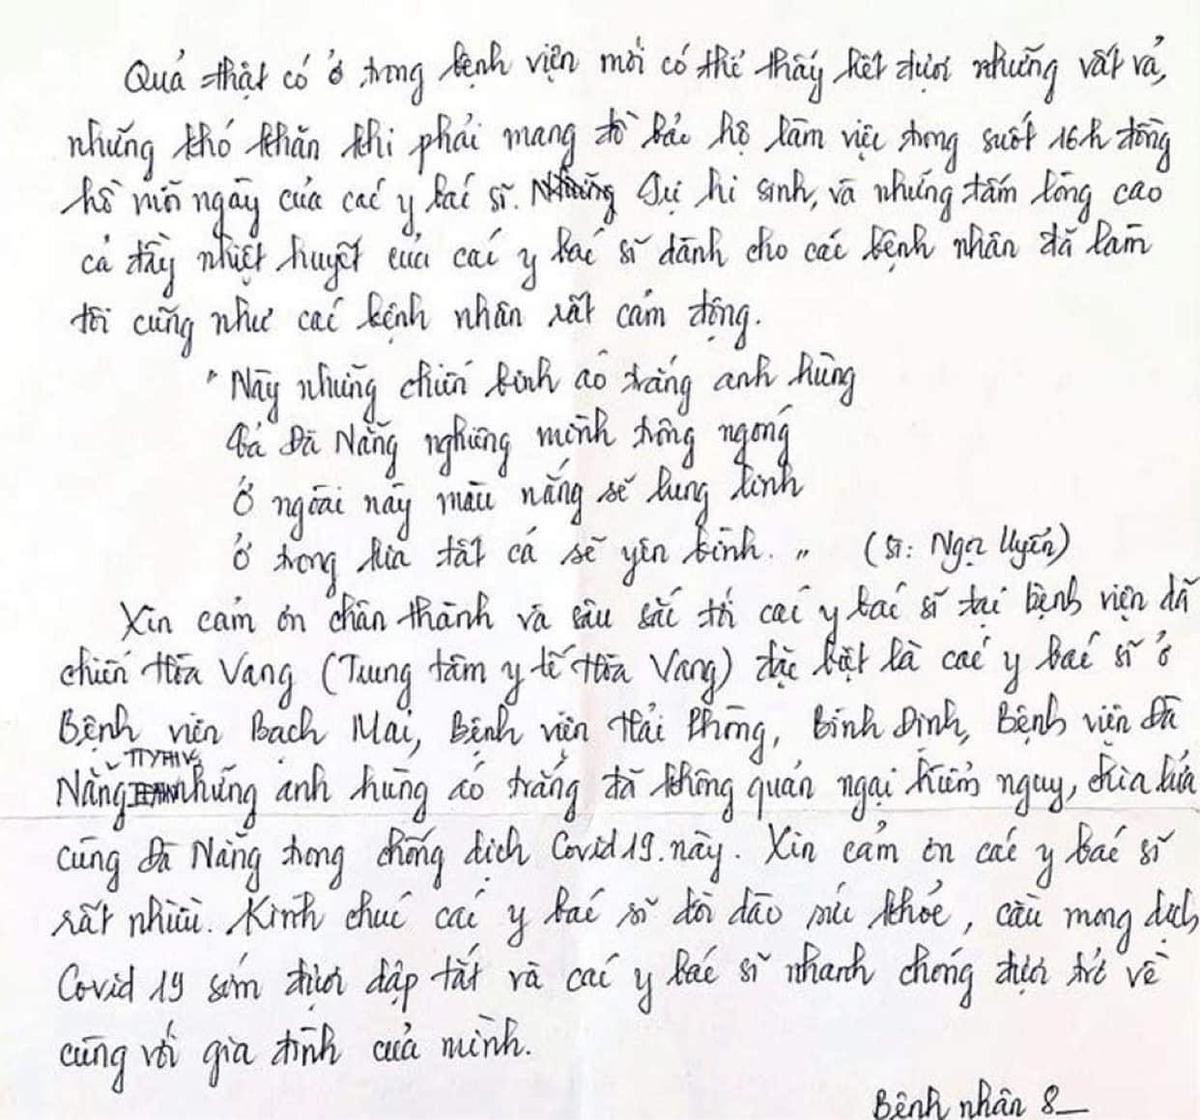 Quả thật có ở trong bệnh viện mới có thể thấy hết được những vất vả,
những khó khăn khi phải mang đồ bảo hộ làm việc trong suốt 16h đồng
hồ mỗi ngày của các y bác sĩ. Những Sự hi sinh, và những tấm lòng cao
cả đầy nhiệt huyết của các y bác sĩ dành cho các bệnh nhân đã làm
tôi cũng như các bệnh nhân rất cảm động.
" Này những chiến binh áo trắng anh hùng
Cả Đà Nẵng nghiêng mình trông ngóng
Ở ngoài này màu nắng sẽ lung linh
Ở trong kia tất cả sẽ yên bình. " (St: Ngọc Uyển)
Xin cảm ơn chân thành và sâu sắc tới các y bác sĩ tại bệnh viện dã
chiến Hòa Vang (Trung tâm y tế Hòa Vang) đặc biệt là các y bác sĩ ở
Bệnh viện Bạch Mai, Bệnh viện Hải Phòng, Bình Định, Bệnh viện Đà
Nẵng, TTYTHV, những anh hùng áo trắng đã không quản ngại hiểm nguy, chia lửa
cùng Đà Nẵng trong chống dịch Covid 19. này. Xin cảm ơn các y bác sĩ
rất nhiều. Kính chúc các y bác sĩ dồi dào sức khỏe, cầu mong dịch
Covid 19 sớm được dập tắt và các y bác sĩ nhanh chóng được trở về
cùng với gia đình của mình.
Bệnh nhân 8